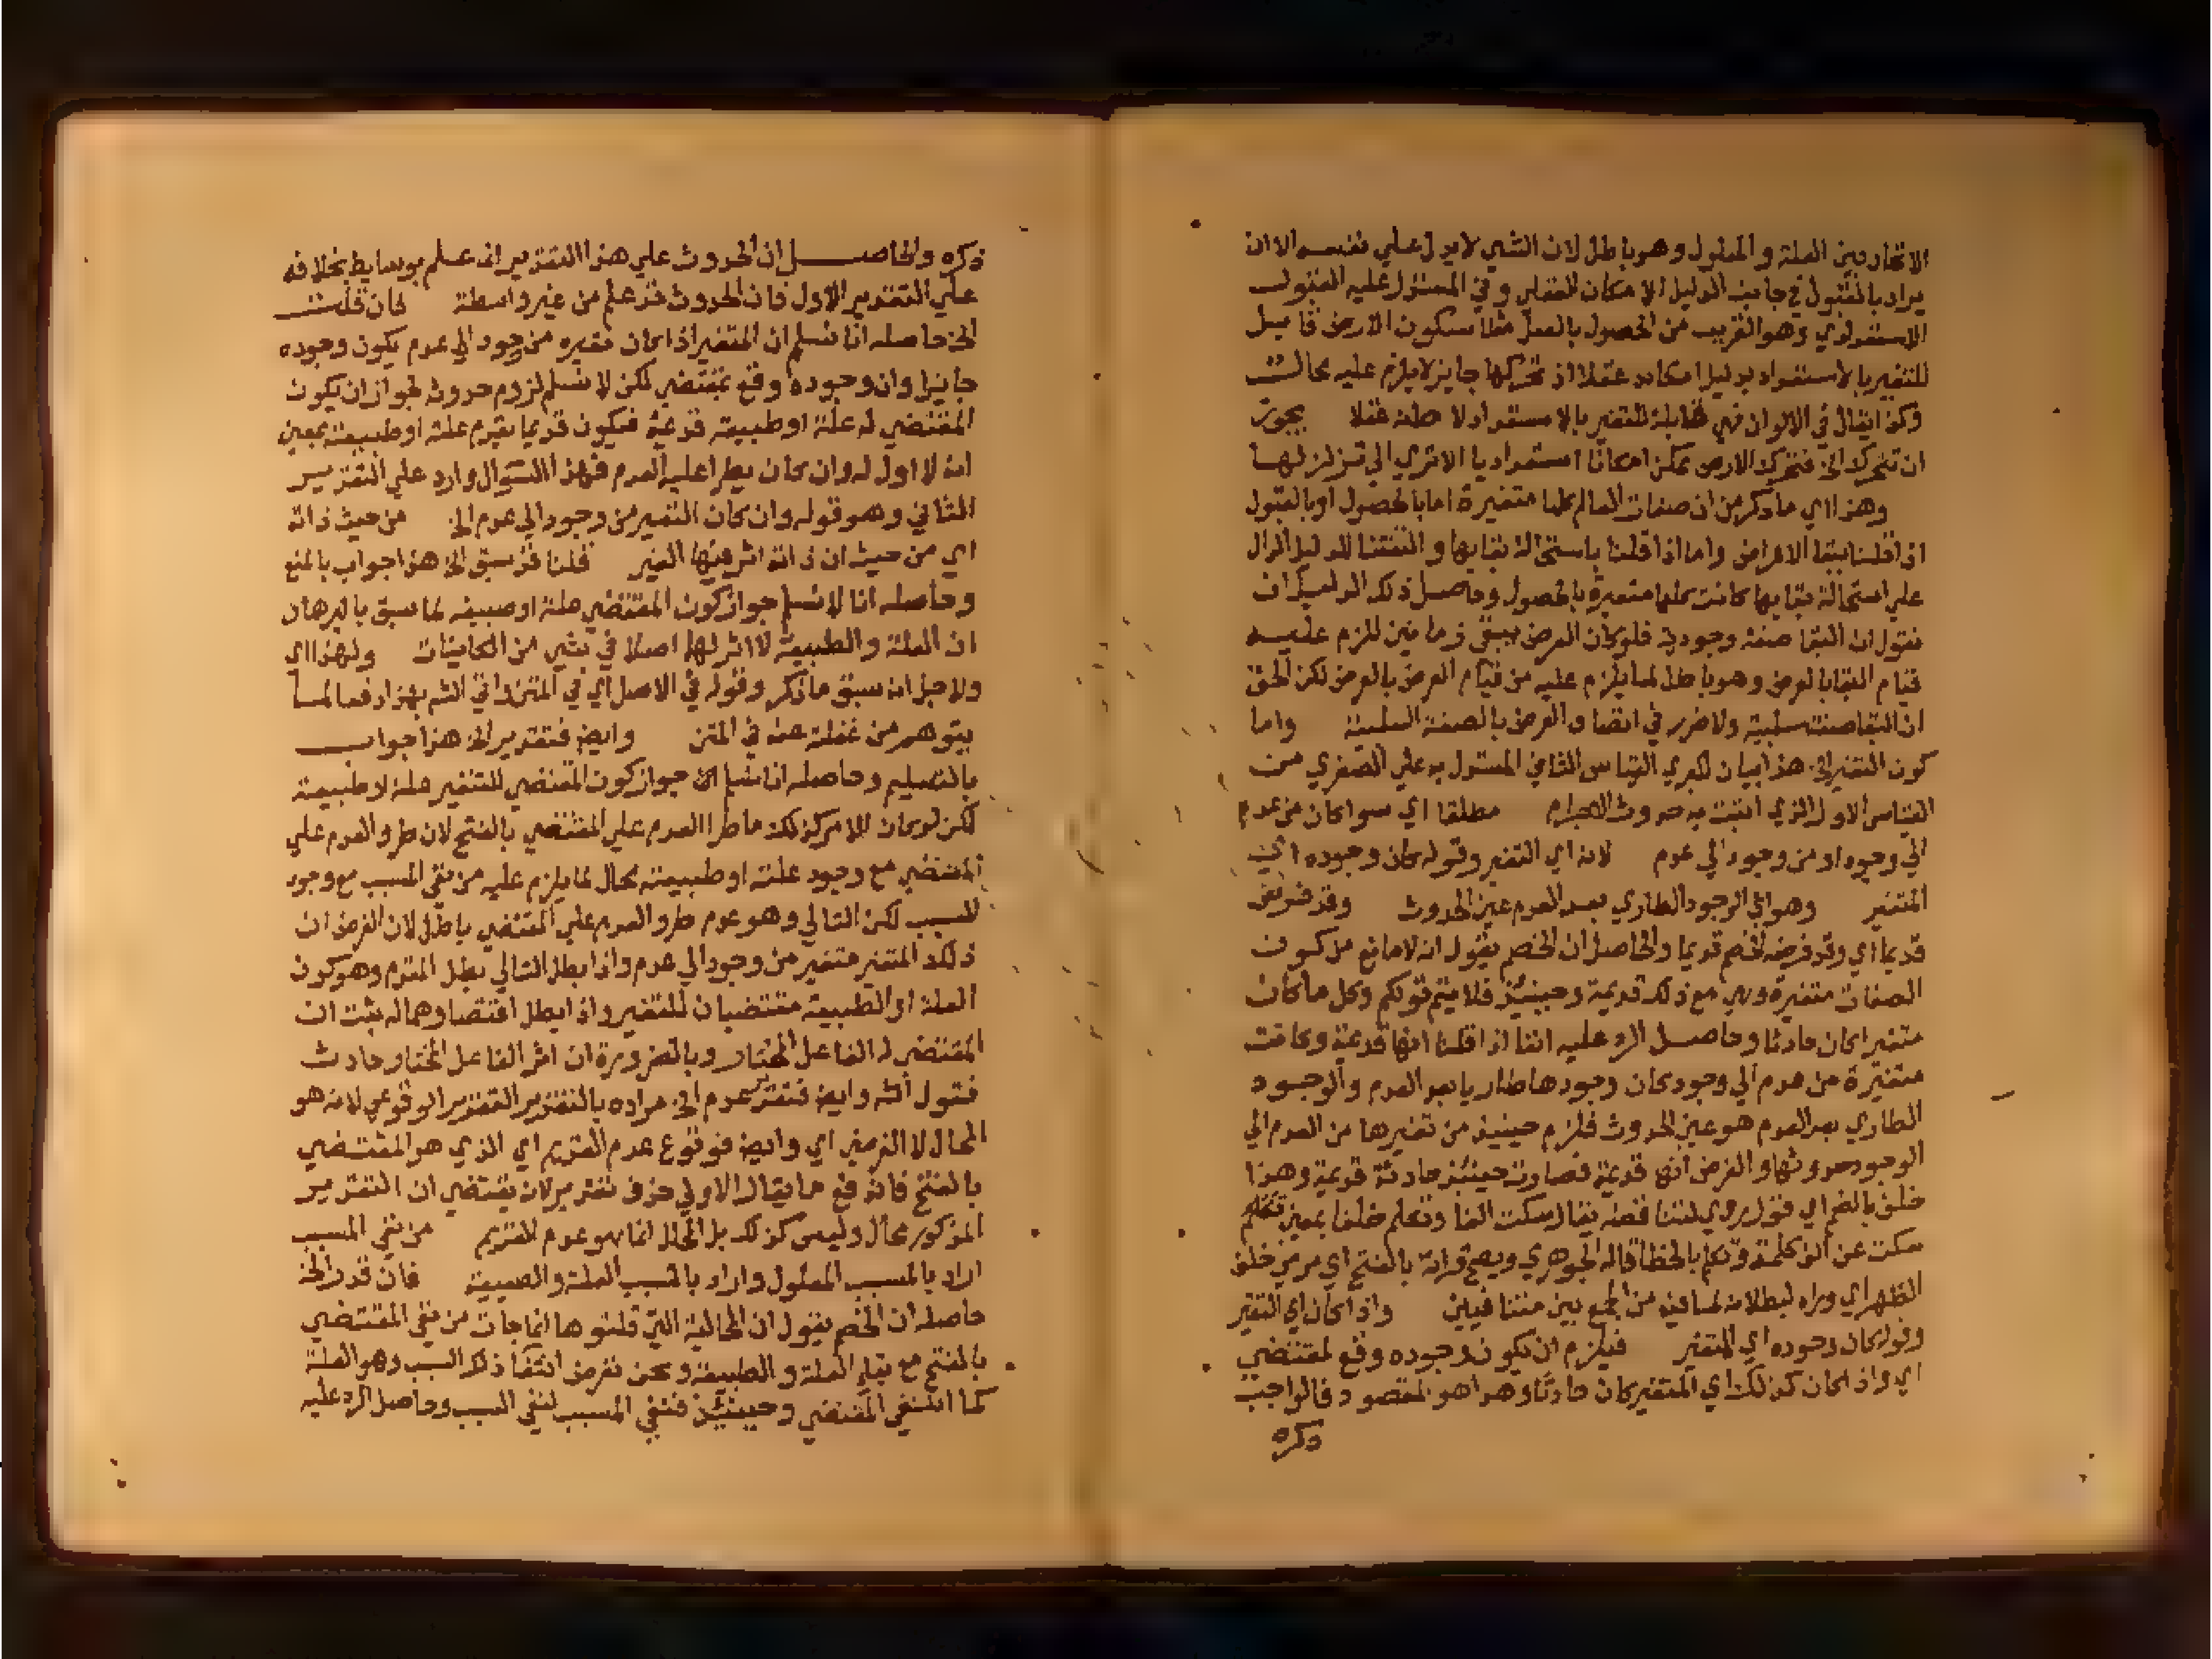 الاتحاد بين العلة والمعلول وهو باطل لان الشي لا يدل علي نفسه الا ان
يراد بالقبول في جانب الدليل الامكان العقلي وفي المستدل عليه القبول
الاستعدادي وهو القريب من الحصول بالفعل مثلا سكون الارض قابل
للتغير بالاستعداد بدليل امكانه عقلا اذ تحركها جايز لا يلزم عليه محال
وكذا يقال في الالوان فهي قابلة للتغير بالاستعداد عقلا يجوز
ان تتحرك الخ فتحرك الارض ممكن امكانا استعداديا الا تري الي تزلزلها
وهذا اي ما ذكر من ان صفات العالم كلها متغيرة اما بالحصول او بالقبول
اذا قلنا ببقا الاعراض واما اذا قلنا باستحالة بقايها والتفتنا للدليل الدال
علي استحالة بقايها كانت كلها متغيرة بالحصول وحاصل ذلك الدليل ان
نقول ان البقا صفة وجودية فلو كان العرض يبقي زمانين للزم عليه
قيام البقا بالعرض وهو باطل لما يلزم عليه من قيام العرض بالعرض لكن الحق
ان البقا صفة سلبية ولا ضرر في اتصاف العرض بالصفة السلبية واما
كون التغير الخ هذا بيان لكبري القياس الثاني المستدل به علي الصغري من
القياس الاول الذي اثبت به حدوث الاجرام مطلقا اي سوا كان من عدم
الي وجود او من وجود الي عدم لانه اي التغير وقوله كان وجوده اي
المتغير وهو اي الوجود الطاري بعد العدم عين الحدوث وقد فرض
قديما اي وقد فرضه الخصم قديما والحاصل ان الخصم يقول انه لا مانع من كون
الصفات متغيرة وهي مع ذلك قديمة وحينئذ فلا يتم قولكم وكل ما كان
متغيرا كان حادثا وحاصل الرد عليه اننا اذا قلنا انها قديمة وكانت
متغيرة من عدم الي وجود كان وجودها طاريا بعد العدم والوجود
الطاري بعد العدم هو عين الحدوث فلزم حينئذ من تغيرها من العدم الي
الوجود حدوثها والفرض انها قديمة فصارت حينئذ حادثة قديمة وهذا
خلف بالضم اي قول ردي لتناقضه يقال سكت الفا وتكلم خلفا بمعني
سكت عن الف كلمة وتكلم بالخطا قاله الجوهري ويصح قراته بالفتح اي مرمي خلف
الظهر اي وراه لبطلانه لما فيه من الجمع بين متنافيين واذا كان اي التغير
وقوله كان وجوده اي المتغير فيلزم ان يكون وجوده وقع لمقتضي
اي واذا كان كذلك اي المتغير كان حادثا وهذا هو المقصود فالواجب
ذكره
ذكره والحاصل ان الحدوث علي هذا التقدير انما علم بوسايط بخلافه
علي التقدير الاول فان الحدوث قد علم من غير واسطة فان قلت
الخ حاصله انا نسلم ان المتغير اذا كان تغيره من وجود الي عدم يكون وجوده
جايزا وان وجوده وقع بمقتضي لكن لا نسلم لزوم حدوثه لجواز ان يكون
المقتضي له علة او طبيعة قديمة فيكون قديما بقدم علته او طبيعته بمعني
انه لا اول له وان كان يطرا عليه العدم فهذا السوال وارد علي التقدير
الثاني وهو قوله وان كان التغير من وجود الي عدم الخ من حيث ذاته
اي من حيث ان ذاته اثر فيها الغير قلنا قد سبق الخ هذا جواب بالمنع
وحاصله انا لا نسلم جواز كون المقتضي علة او طبيعة لما سبق بالبرهان
ان العلة والطبيعة لا اثر لها اصلا في شي من الكاينات ولهذا اي
ولاجل انه سبق ما ذكر وقوله في الاصل اي في المتن بهذا دفعا لما
يتوهم من غفلة عنه في المتن وايضا فتقدير الخ هذا جواب
بالتسليم وحاصله انا نسلم جواز كون المقتضي للمتغير علة او طبيعة
لكن لو كان الامر كذلك ما طرا العدم علي المقتضي بالفتح لان طرو العدم علي
المقتضي مع وجود علته او طبيعته محال لما يلزم عليه من نفي المسبب مع وجود
السبب لكن التالي وهو عدم طرو العدم علي المقتضي باطل لان الفرض ان
ذلك المتغير متغير من وجود الي عدم واذا بطل التالي بطل المقدم وهو كون
العلة او الطبيعة مقتضيان للمتغير واذا بطل اقتضاوهما له ثبت ان
المقتضي له الفاعل المختار وبالضرورة ان اثر الفاعل المختار حادث
فقول الش وايضا فتقدير عدم الخ مراده بالتقدير التقدير الوقوعي لانه هو
المحال لا الفرضي اي وايضا فوقوع عدم القديم اي الذي هو المقتضي
بالفتح فاندفع ما يقال الاولي حذف تقدير لانه يقتضي ان التقدير
المذكور محال وليس كذلك بل المحال انما هو عدم القديم من نفي المسبب
اراد بالمسبب المعلول واراد بالسبب العلة والطبيعة فان قدر الخ
حاصله ان الخصم يقول ان المحالية التي قلتوها انما جات من نفي المقتضي
بالفتح مع بقاء العلة والطبيعة ونحن نفرض انتفا ذلك السبب وهو العلة
كما انتفي المقتضي وحينئذ فنفي المسبب لنفي السبب وحاصل الرد عليه